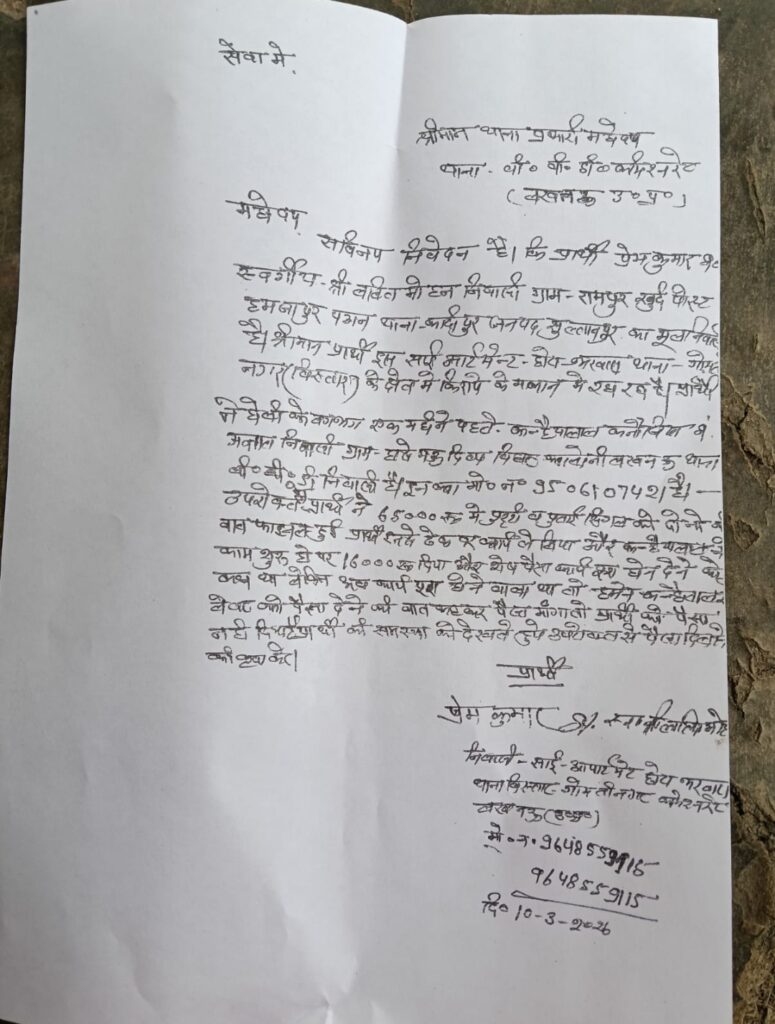 सेवा मे,
श्रीमान थाना प्रभारी महोदय
थाना - बी० बी० डी० कमिश्नरेट
(लखनऊ उ० प्र०)
महोदय,
सविनय निवेदन है। कि प्रार्थी प्रेम कुमार
स्वर्गीय - श्री ललित मोहन निवासी ग्राम - रामपुर खुर्द पोस्ट
हमजापुर पठान थाना - कादीपुर जनपद सुल्तानपुर का मूल निवासी
है। श्रीमान प्रार्थी इस सांई अपार्टमेन्ट - थाना - गोमती
नगर (विस्तार) के क्षेत्र मे किराये के मकान मे रह रहा है। प्रार्थी
ने होली के लगभग एक महीने पहले - कन्हैयालाल कनौजिया
मकान निवासी ग्राम - कालोनी लखनऊ थाना
बी० बी० डी० निवासी है। इनका मो० न० 9506107421 है। -
उपरोक्त प्रार्थी ने 65000 रू मे की दोनो
बात फाइनल हुई प्रार्थी ठेके पर कार्य ले लिया और कन्हैयालाल ने
काम शुरू होने पर 16000 रू दिया और शेष पैसा कार्य पूरा होने देने को
कहा था लेकिन अब कार्य पूरा होने वाला था तो हमने कन्हैयालाल
लेबर को पैसा देने की बात कहकर पैसा मांगा तो प्रार्थी को पैसा
नही दिया प्रार्थी की समस्या को देखते हुये उपरोक्त से पैसा दिलाने
की कृपा करे।
प्रार्थी
प्रेम कुमार S/. स्व० श्री ललित मोहन
निवासी - साई - अपार्टमेंट
थाना विस्तार - गोमतीनगर कमिश्नरेट
लखनऊ (उ०प्र०)
मो. न. 9648559115
9648559115
दि० 10-3-2026